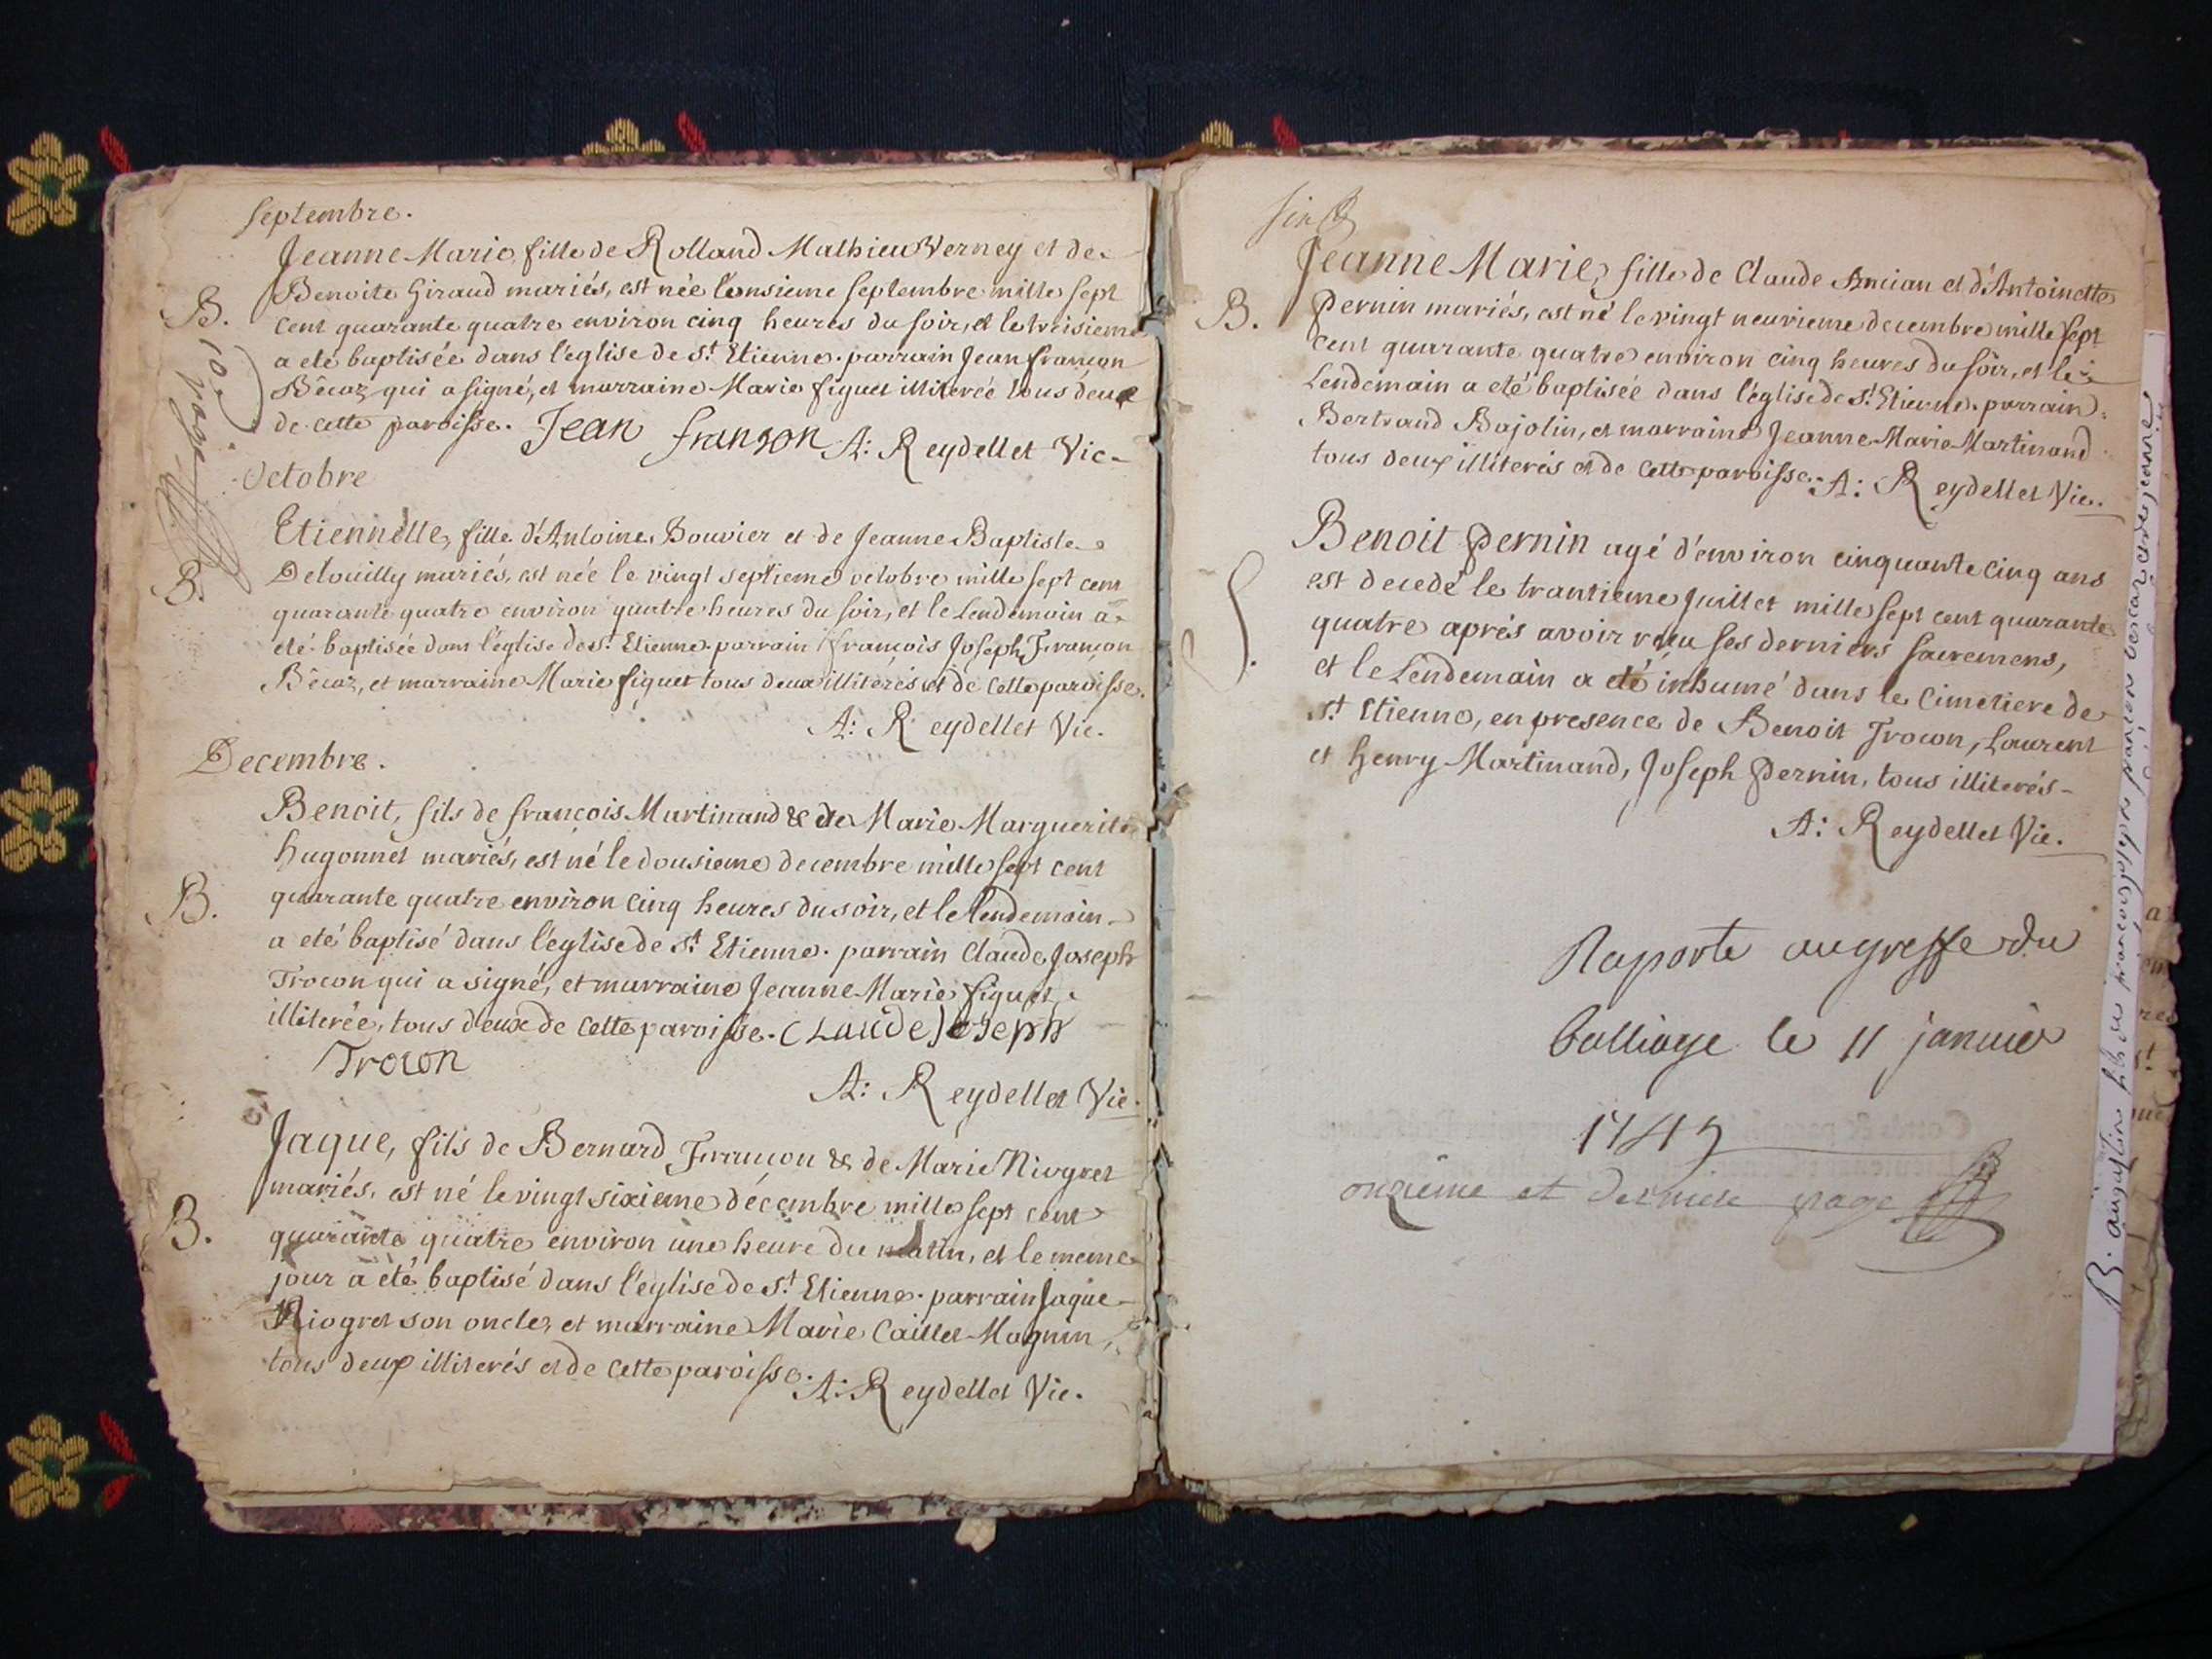 Septembre.
Jeanne Marie, fille de Rolland Mathieu Verney et de
Benoite Giraud mariés, est née l'onsieme septembre mille sept
B. cent quarante quatre environ cinq heures du soir, et le treisieme
a eté baptisée dans l'eglise de St. Etienne. parrain Jean françon
Bêcaz qui a signé, et marraine Marie figuet illiterée tous deux
de cette paroisse. Jean franson A: Reydellet Vic.
10e page
Octobre
Etiennette, fille d'Antoine Bouvier et de Jeanne Baptiste
B. Detouilly mariés, est née le vingt septieme octobre mille sept cent
quarante quatre environ quatre heures du soir, et le Lendemain a
eté baptisée dans l'église de St. Etienne. parrain françois Joseph Françon
Bêcaz, et marraine Marie figuet tous deux illiterés et de cette paroisse.
A: Reydellet Vic.
Decembre.
Benoit, fils de françois Martinand & de Marie Marguerite
hugonnet mariés, est né le dousieme decembre mille sept cent
B. quarante quatre environ cinq heures du soir, et le lendemain
a eté baptisé dans l'église de St Etienne. parrain Claude Joseph
Trocon qui a signé, et marraine Jeanne Marie figuet
illiterée, tous deux de cette paroisse. Claude Joseph
Trocon
A: Reydellet Vic.
Jaque, fils de Bernard Françon & de Marie Niogret
mariés, est né le vingt sixieme décembre mille sept cent
B. quarante quatre environ une heure du matin, et le meme
jour a eté baptisé dans l'eglise de St. Etienne. parrain Jaque
Niogret son oncle, et marraine Marie Caillet Magnin,
tous deux illiterés et de cette paroisse. A: Reydellet Vic.
Jeanne Marie, fille de Claude Ancian et d'Antoinette
B. Pernin mariés, est né le vingt neuvieme decembre mille sept
cent quarante quatre environ cinq heures du soir, et le
Lendemain a eté baptisée dans l'église de St. Etienne. parrain
Bertrand Bajolin, et marraine Jeanne Marie Martinand
tous deux illiterés et de cette paroisse. A: Reydellet Vic.
Benoit Pernin agé d'environ cinquante cinq ans
est decedé le trantieme Juillet mille sept cent quarante
S. quatre aprés avoir reçu ses derniers sacremens,
et le Lendemain a eté inhumé dans le Cimetiere de
St Etienne, en presence de Benoit Trocon, Laurent
et henry Martinand, Joseph Pernin, tous illiterés
A: Reydellet Vic.
Raporte au greffe du
balliage le 11 janvier
1745
onzieme et derniere page
B. augustin fils de francois joseph françon becaz et de jeanne